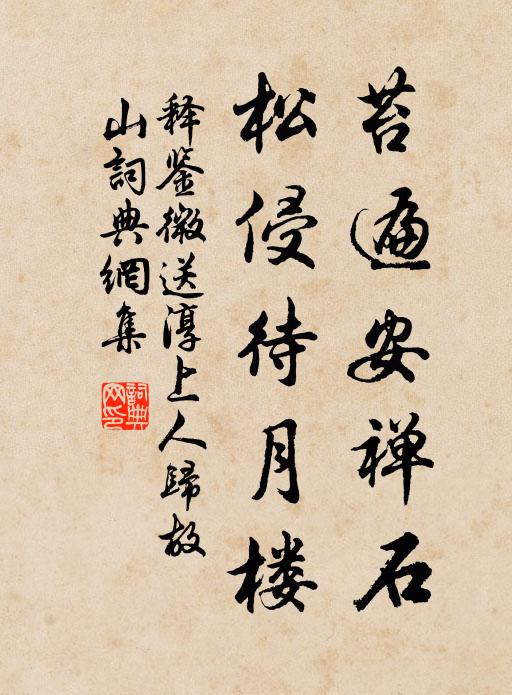 苔遍安禅石
松侵待月楼
释鉴微送淳上人歸故
山詞典網集
詞典
网印